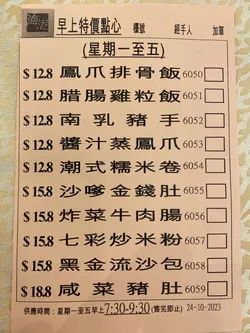 海港
早上特價點心 檯號 經手人 加單
(星期一至五)
$12.8 鳳爪排骨飯 6050
$12.8 腊腸雞粒飯 6051
$12.8 南乳豬手 6052
$12.8 醬汁蒸鳳爪 6053
$12.8 潮式糯米卷 6054
$15.8 沙嗲金錢肚 6055
$15.8 炸菜牛肉腸 6056
$15.8 七彩炒米粉 6057
$15.8 黑金流沙包 6058
$18.8 咸菜豬肚 6059
供應時間：星期一至五早上7:30-9:30 (售完即止) 24-10-2023